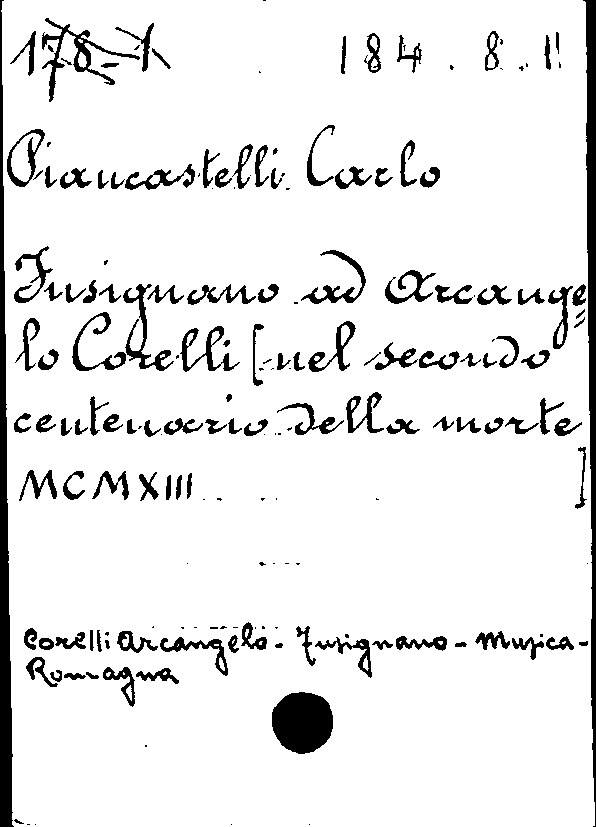 178-1 184.8.1
Piancastelli Carlo
Fusignano ad Arcange=
lo Corelli [nel secondo
centenario della morte
MCMXIII ]
Corelli Arcangelo - Fusignano - Musica -
Romagna